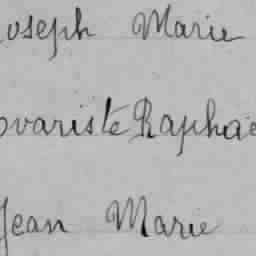 Joseph Marie
Evariste Raphaë
Jean Marie